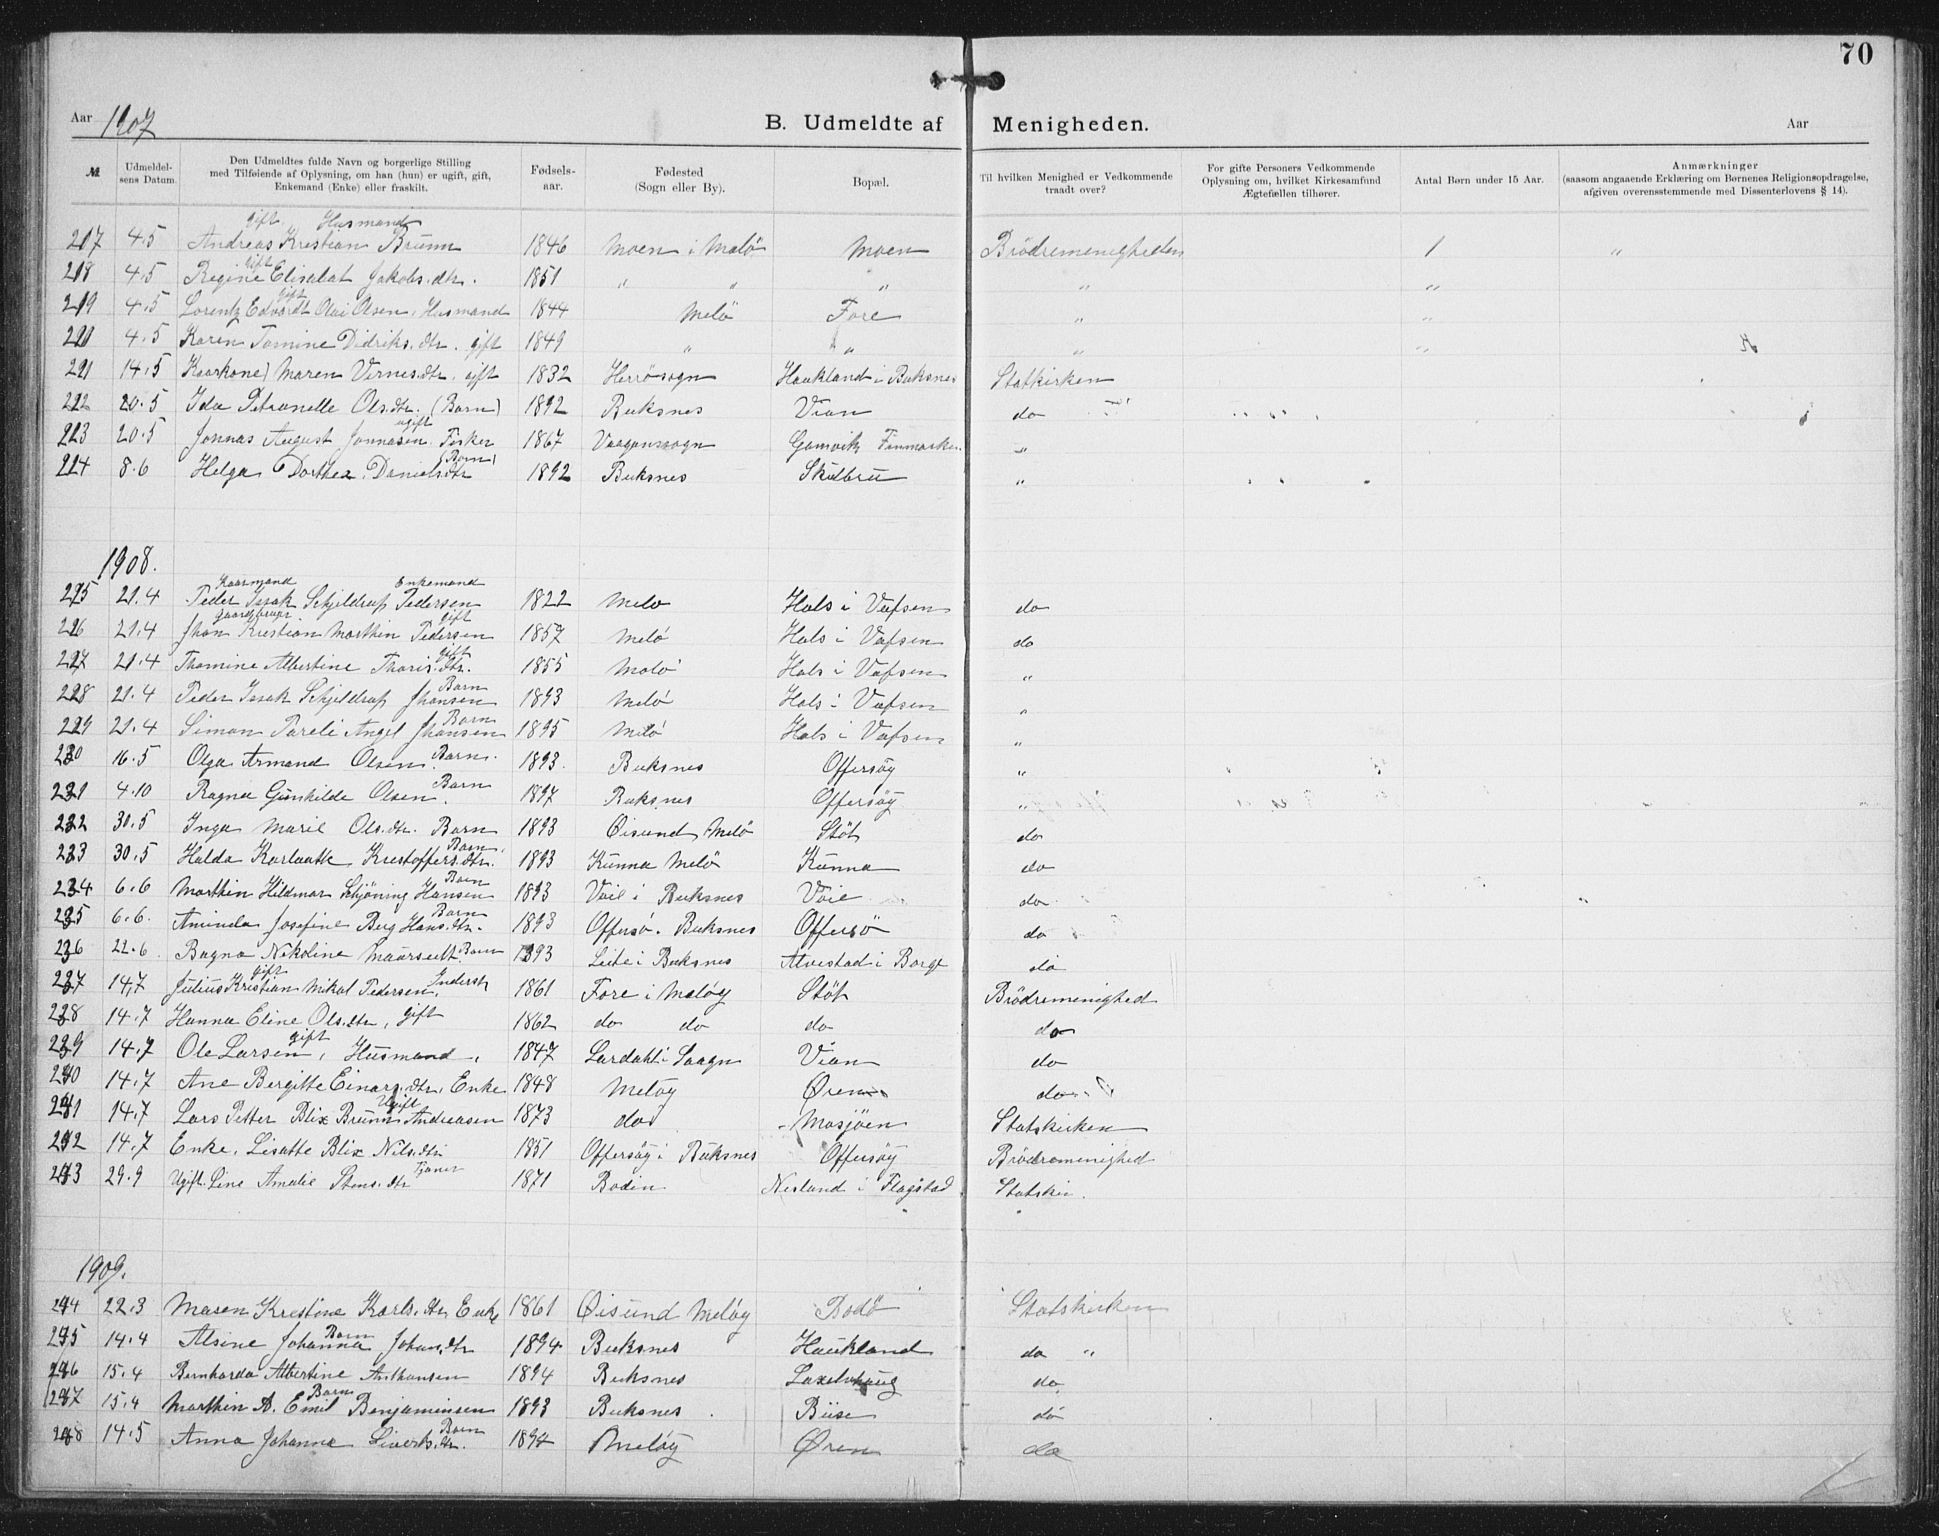 70
Aar 1907 B. Udmeldte af Menigheden. Aar
№ Udmeldelsens Datum. Den Udmeldtes fulde Navn og borgerlige Stilling med Tilføiende af Oplysning, om han (hun) er ugift, gift, Enkemand (Enke) eller fraskilt. Fødselsaar. Fødested (Sogn eller By). Bopæl. Til hvilken Menighed er Vedkommende traadt over? For gifte Personers Vedkommende Oplysning om, hvilket Kirkesamfund Ægtefællen tilhører. Antal Børn under 15 Aar. Anmærkninger (saasom angaaende Erklæring om Børnenes Religionsopdragelse, afgiven overensstemmende med Dissenterlovens § 14).
gift Husmand
217 4.5 Andreas Kristian Brunn 1846 Moen i Melö Moen Brödremenigheden 1 "
218 4.5 Regine gift Elisabat Jakobs.dtr. 1851 " " " " "
219 4.5 Lorentz Edvardt gift Olai Olsen, Husmand 1844 Melö Fore " "
220 4.5 Karen Tomine Didriks.dtr. gift 1849 " " " "
221 14.5 Kaarkone) Maren Virnes.dtr. gift 1832 Herrösogn Haukland i Buksnes Statkirken
222 20.5 Ida Petronelle Ols.dtr. (Barn) 1892 Buksnes Vian do
223 20.5 Jonnas August Jonnasen ugift Fisker 1867 Vaagenssogn Gamvik Finmarken "
224 8.6 Helga Dorthea Daniels.dtr (Barn) 1892 Buksnes Skulbru "
1908.
Kaarmand Enkemand
225 21.4 Peder Isak Schjeldrup Pedersen 1822 Melö Hals i Vefsen do
gaardbruger gift
226 21.4 Jhan Kristian Marthin Pedersen 1857 Melö Hals i Vefsen do
227 21.4 Thomine Albertine Thoris.dtr. gift 1855 Melö Hals i Vefsen "
228 21.4 Peder Isak Schjeldrup Jhansen Barn 1893 Melö Hals i Vefsen "
229 21.4 Simon Pareli Angel Jhansen Barn 1895 Melö Hals i Vefsen "
230 16.5 Olga Armand Olsen Barn. 1893. Buksnes Offersöy "
231 4.10 Ragna Gunhilde Olsen. Barn 1897 Buksnes Offersöy "
232 30.5 Inga Marie Ols.dtr. Barn 1893 Öisund Melö Stöt do
233 30.5 Halda Karlaatte Krestoffers.dtr. Barn. 1893 Kunna Melö Kunna do
234 6.6 Marthin Hildmar Schjöning Hansen Barn 1893 Voie i Buksnes Voie do
235 6.6. Aminda Josefine Berg Hans.dtr. Barn 1893 Offersö. Buksnes Offersö do
236 22.6. Ragna Nikoline Maarsedt. Barn 1893 Leite i Buksnes Alvestad i Borge do
237 14.7 Julius Kristian gift Mikal Pedersen, Inderst 1861 Fore i Melöy Stöt Brödremenighed
238 14.7 Hanna Eline Ols.dtr, gift 1862 do do do do
239 14.7 Ole Larsen, gift Husmand, 1847 Lardahl i Saagn Vian do
240 14.7 Ane Bergitte Einars.dtr, Enke 1848 Melöy Øren do
241 14.7 Lars Petter Blix Brunn Andreasen Ugift 1873 do Mosjöen Statskirken
242 14.7 Enke. Lisatte Blix Nils.dtr 1851 Offersöy i Buksnes Offersöy Brödremenighed
243 29.9 Ugift. Line Amalie Stens.dtr Tjener 1871 Bodin Nesland i Flagstad Statskir.
1909.
244 22.3 Maren Krestine Karls.dtr Enke 1861 Øisund Melöy Bodö Statskirken
245 14.4 Alsine Johanna Barn Johans.dtr 1894 Buksnes Haukland do "
246 15.4 Bernharda Albertine Anthonsen 1894 Buksnes do
247 15.4 Marthin A. Emil Barn Benjaminsen 1893 Buksnes Büse do
248 14.5 Anna Johanna Siverts.dtr. Barn 1894 Melöy Øren do